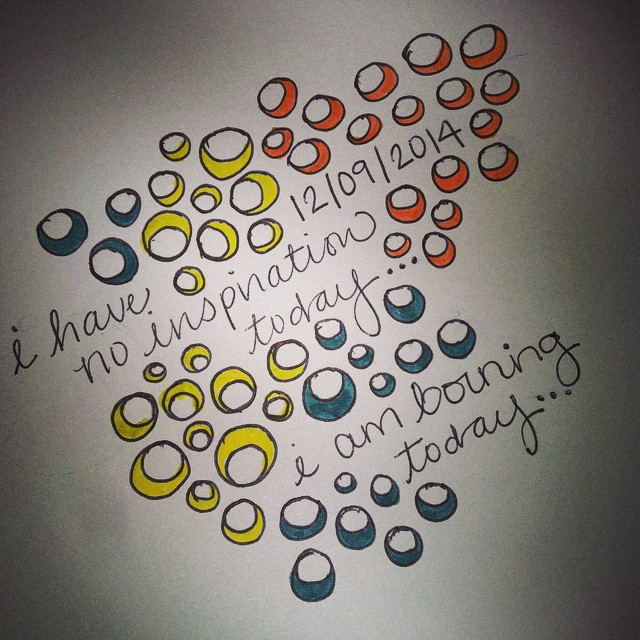 12/09/2014
i have
no inspiration
today...
i am boring
today...